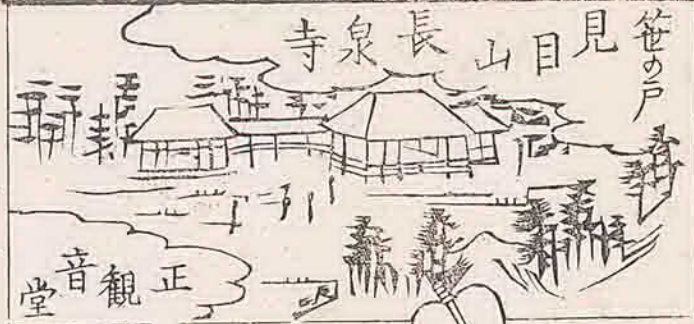 笹の戸
見目山長泉寺
正観音堂